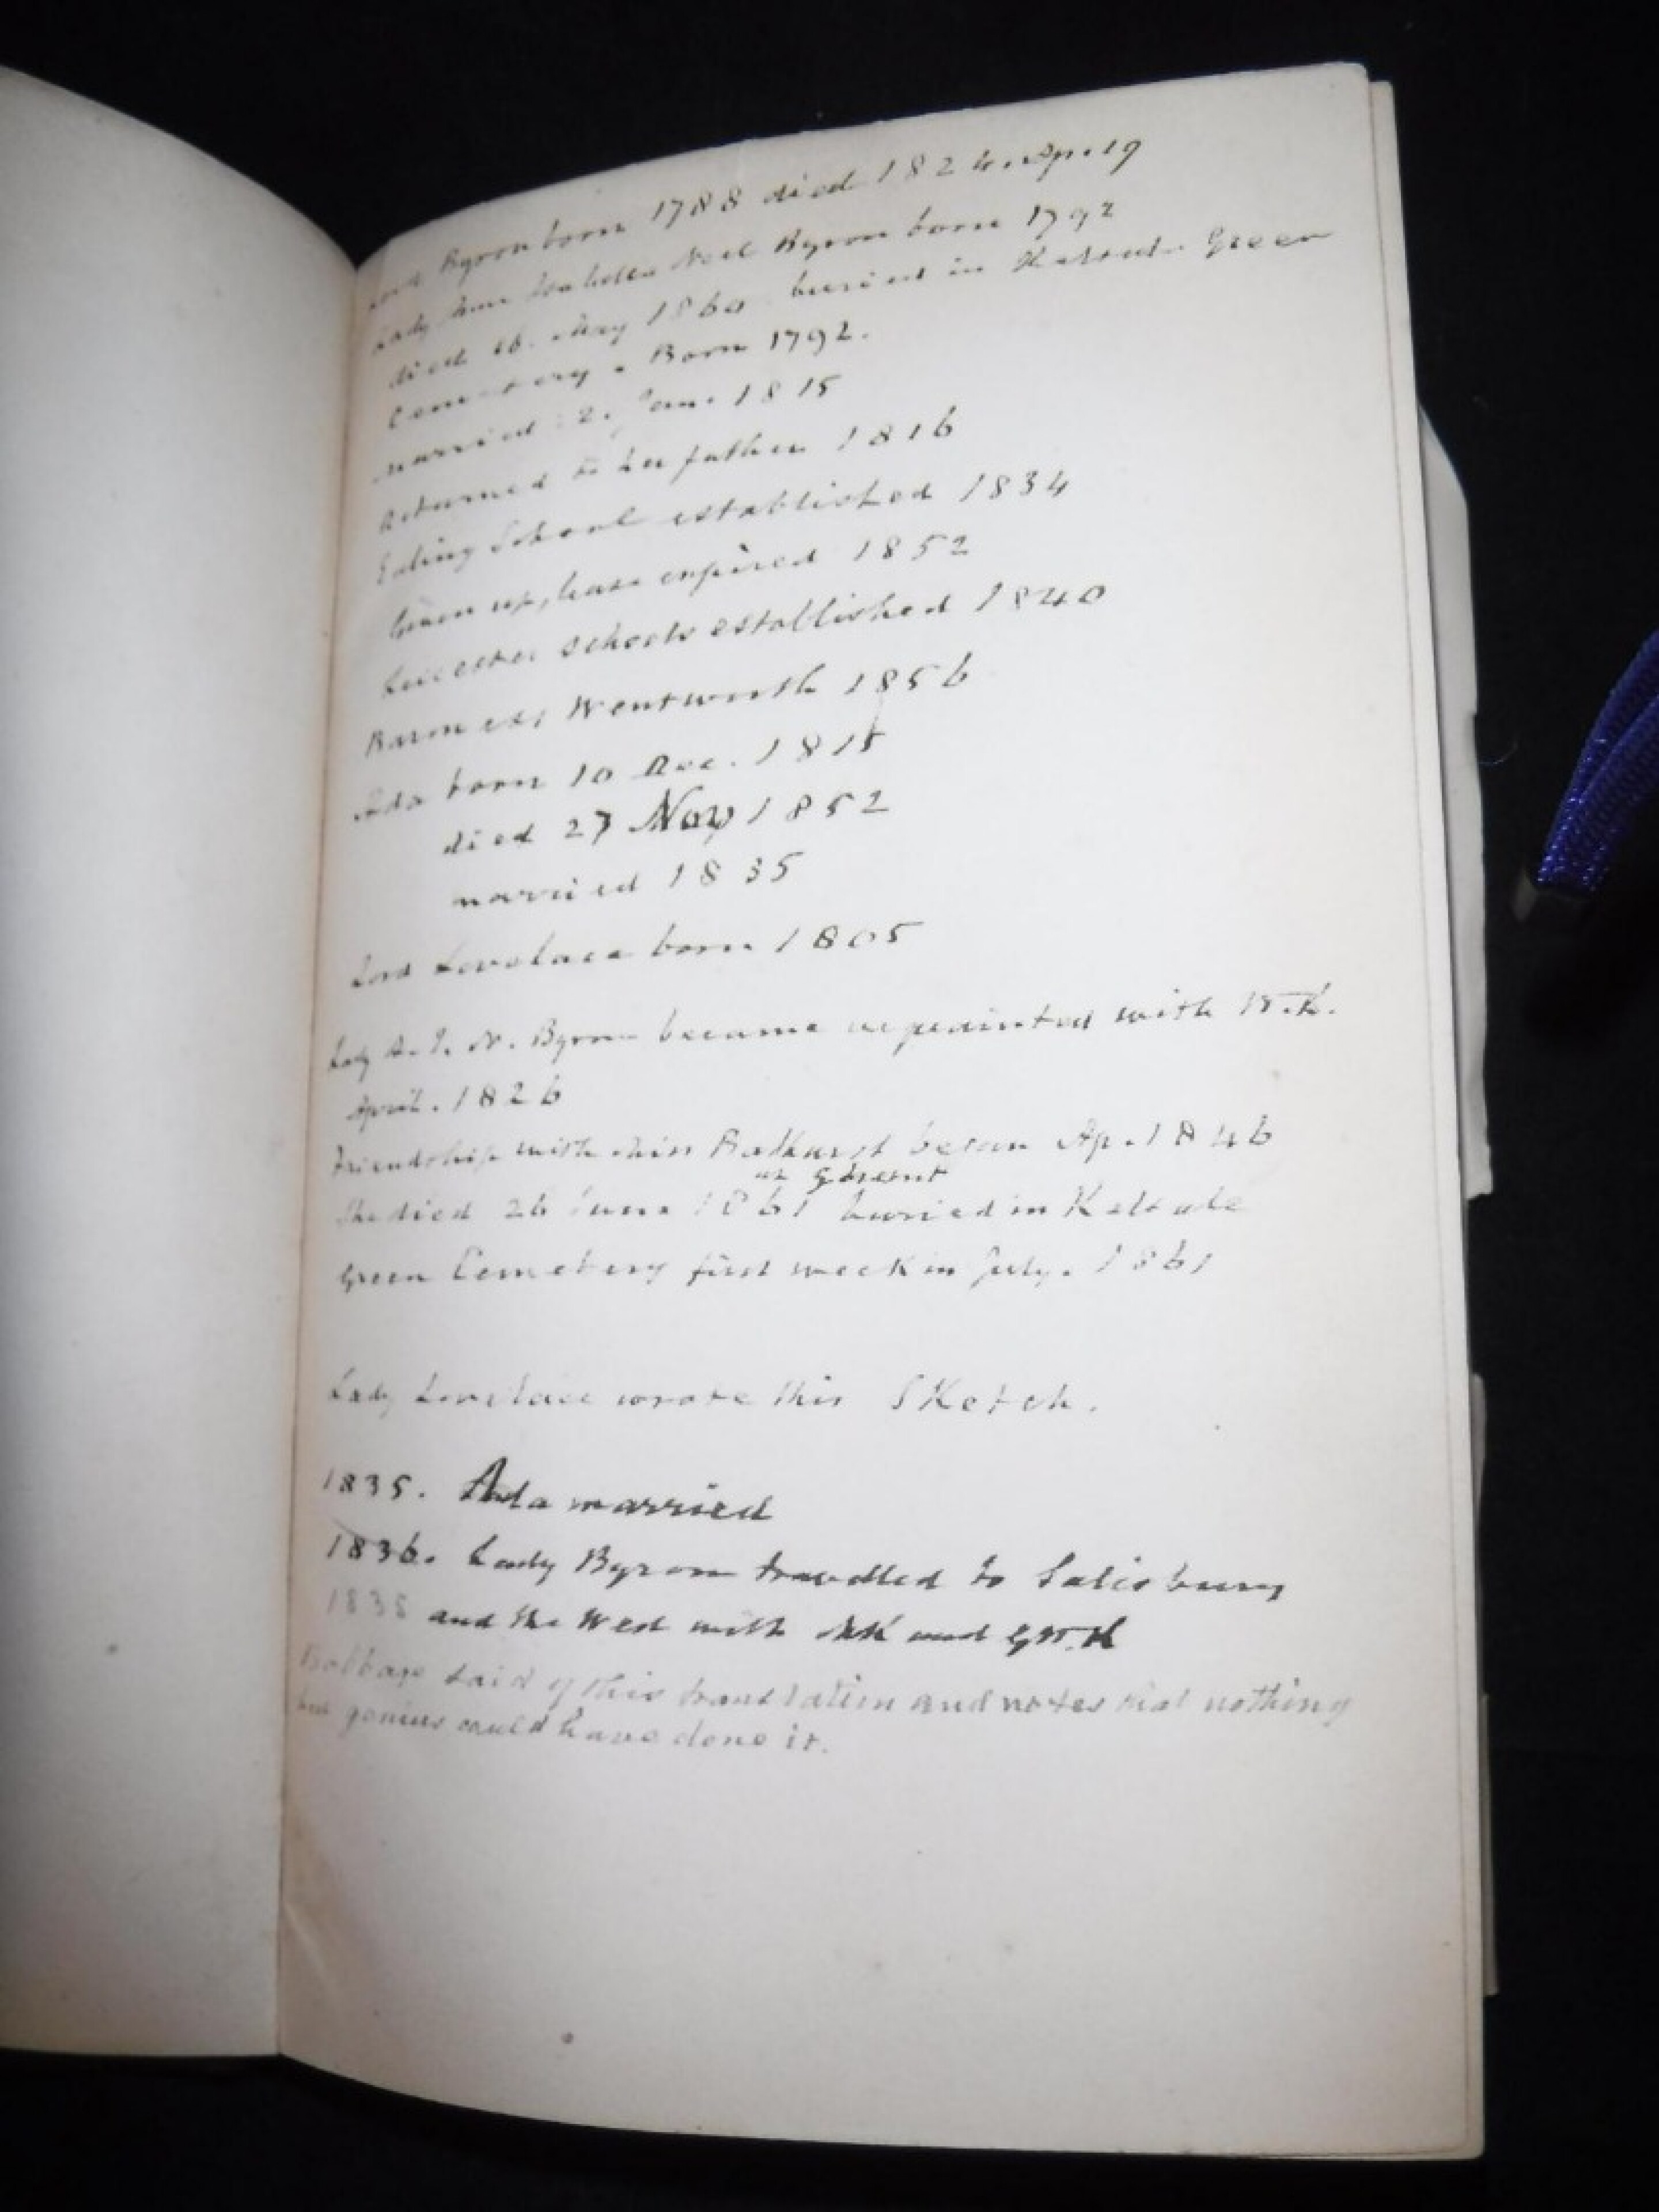 Lord Byron born 1788 died 1824. Ap. 19
Lady Ann Isabella Noel Byron born 1792
died 16. May 1860 buried in Kelsale Green
Cemetery. Born 1792.
married 2. Jan. 1815
Returned to her father 1816
Ealing School established 1834
Given up, lease expired 1852
Leicester Schools established 1840
Baroness Wentworth 1856
Ada born 10 Dec. 1815
died 27 Nov 1852
married 1835
Lord Lovelace born 1805
Lady A. I. N. Byron became acquainted with
April. 1826
Friendship with Miss Bathurst began Ap. 1846
at
She died 26 June 1861 buried in Kelsale
Green Cemetery first week in July. 1861
Lady Lovelace wrote this Sketch.
1835. Ada married
1836. Lady Byron travelled to Salisbury
1838 and the West with MK and
Babbage said of this translation and notes that nothing
but genius could have done it.